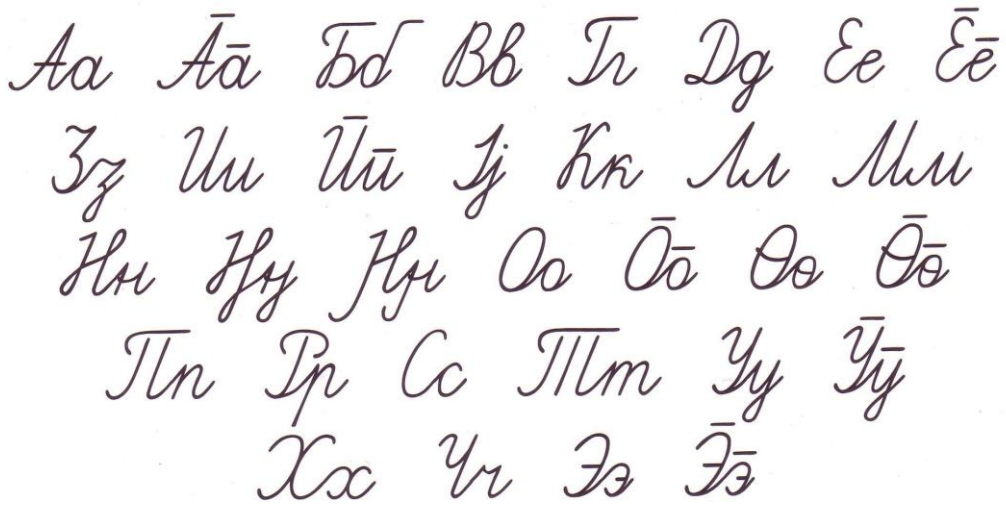 Аа А̄а̄ Бб Вв Гг Дд Ее Е̄е̄
Зз Ии Ӣӣ Јј Кк Лл Мм
Нн Ңң Ԣԣ Оо О̄о̄ Өө Ө̄ө̄
Пп Рр Сс Тт Уу Ӯӯ
Хх Чч Ээ Э̄э̄